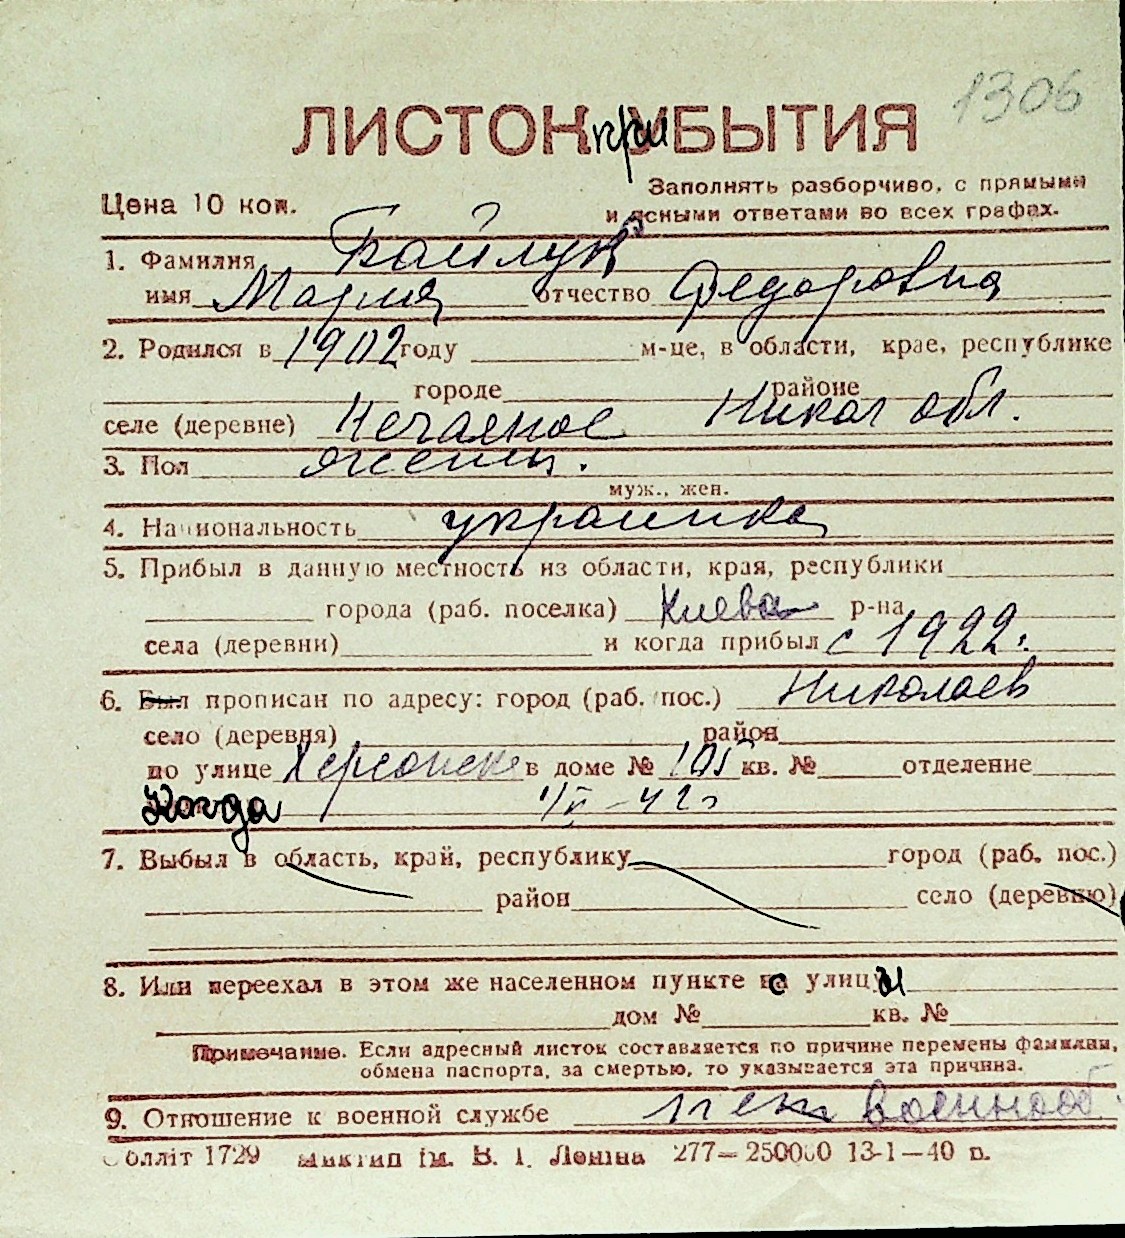 1306
ЛИСТОК при УБЫТИЯ
Цена 10 коп.
Заполнять разборчиво, с прямыми
и ясными ответами во всех графах.
1. Фамилия
имя Мария отчество Федоровна
2. Родился в 1902 году м-це, в области, крае, республике
городе районе
селе (деревне) Нечаяное Никол обл.
3. Пол женщ.
муж., жен.
4. Национальность украинка
5. Прибыл в данную местность из области, края, республики
города (раб. поселка) Киева р-на
села (деревни) и когда прибыл с 1922г.
6. Был прописан по адресу: город (раб. пос.) Николаев
село (деревня) район
по улице Херсонск в доме № 105 кв. № отделение
Когда -42г
7. Выбыл в область, край, республику город (раб. пос.)
район село (деревню)
8. Или переехал в этом же населенном пункте с улицы
дом № кв. №
Примечание. Если адресный листок составляется по причине перемены фамилии,
обмена паспорта, за смертью, то указывается эта причина.
9. Отношение к военной службе военнооб.
Обллiт 1729 Миктип iм. В. I. Ленiна 277—250000 13-1—40 р.